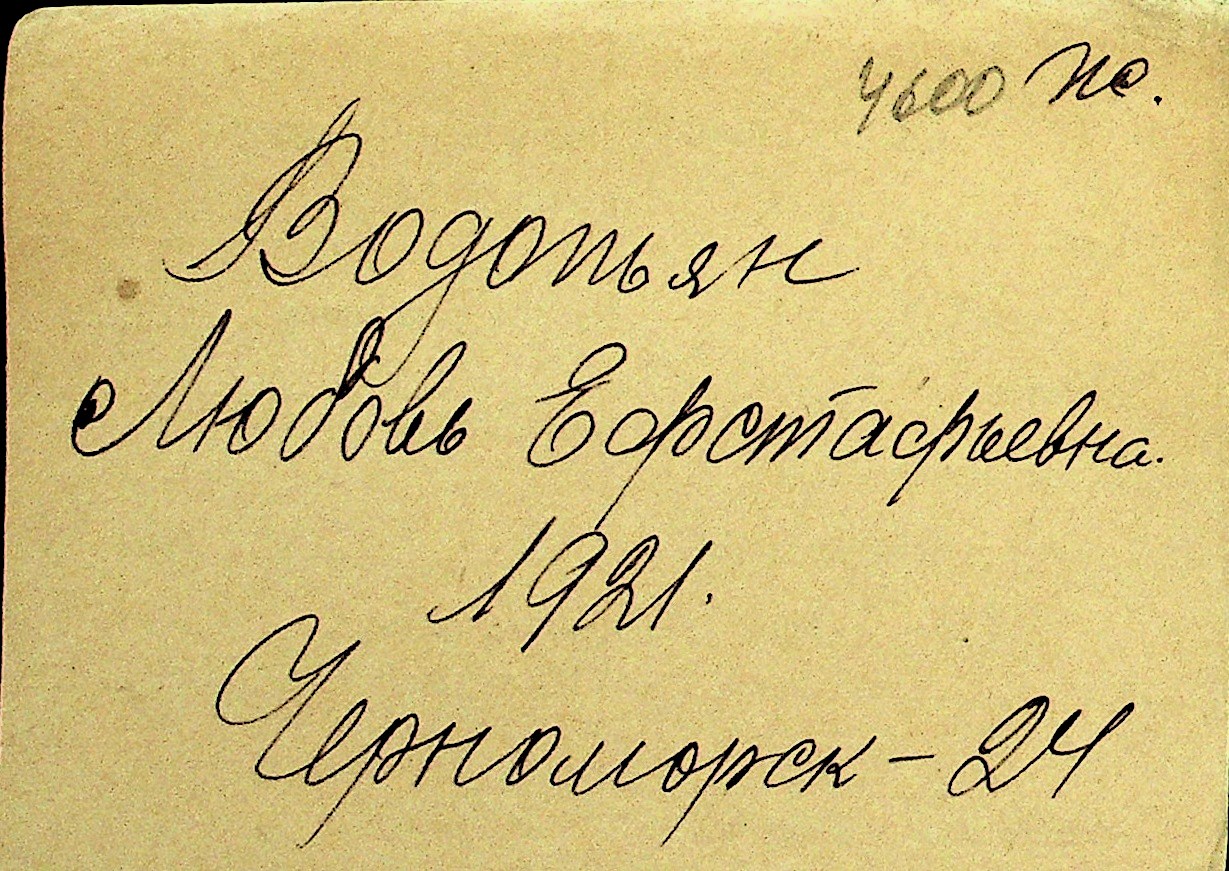 4600 по.
Водопьян
Любовь Ефстафьевна.
1921.
Черноморск - 24